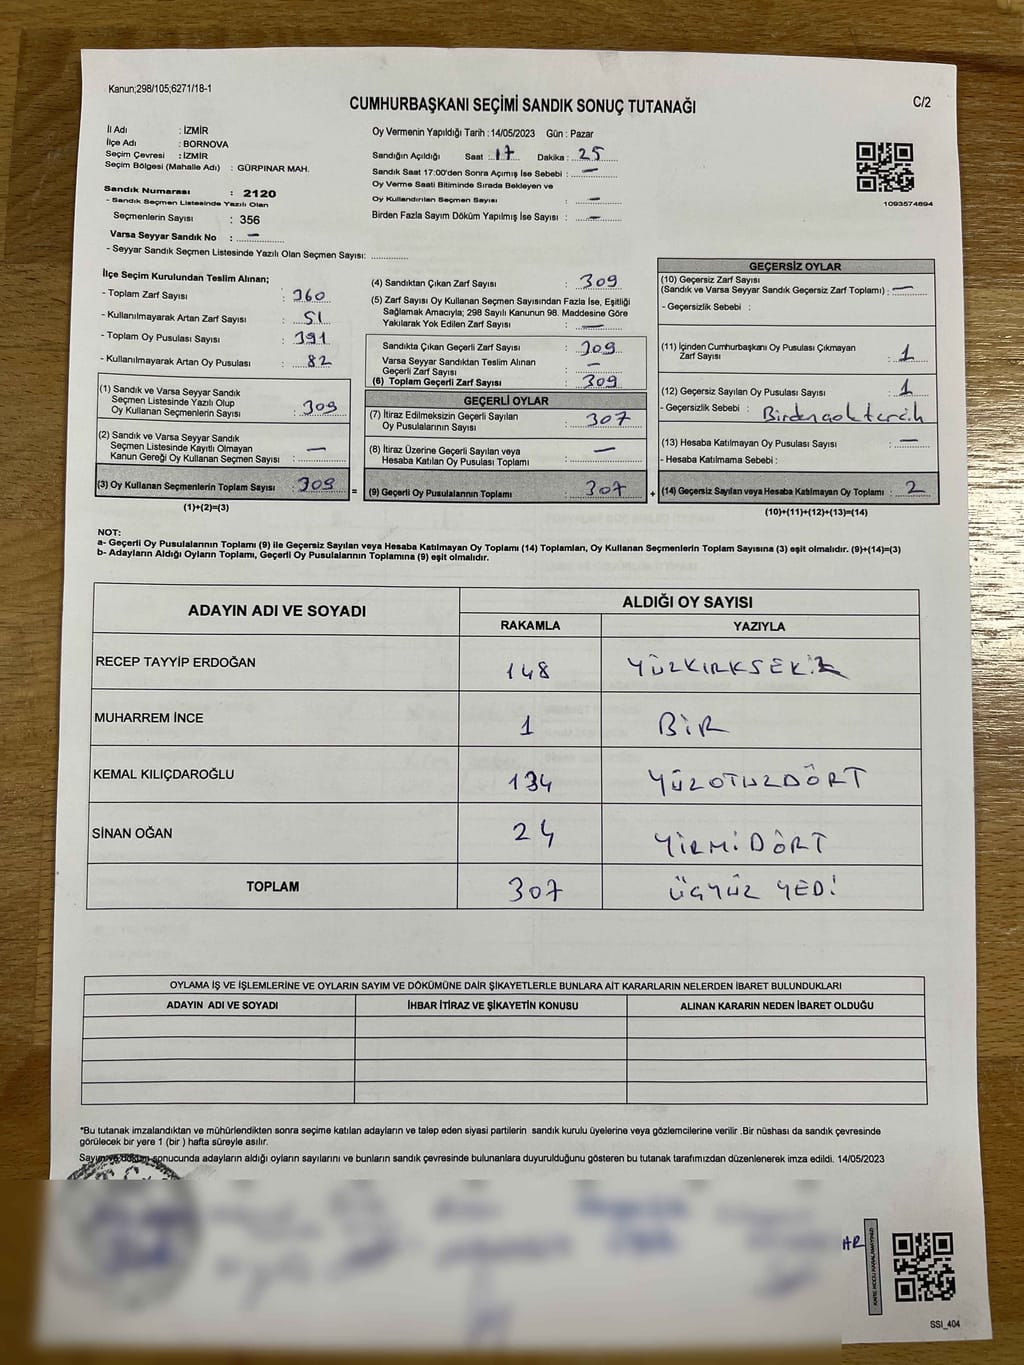 Kanun;298/105;6271/18-1
CUMHURBAŞKANI SEÇİMİ SANDIK SONUÇ TUTANAĞI
C/2
İl Adı : İZMİR
İlçe Adı : BORNOVA
Seçim Çevresi : İZMİR
Seçim Bölgesi (Mahalle Adı) : GÜRPINAR MAH.
Sandık Numarası : 2120
- Sandık Seçmen Listesinde Yazılı Olan
Seçmenlerin Sayısı : 356
Varsa Seyyar Sandık No : —
- Seyyar Sandık Seçmen Listesinde Yazılı Olan Seçmen Sayısı:
Oy Vermenin Yapıldığı Tarih : 14/05/2023 Gün : Pazar
Sandığın Açıldığı Saat : 17 Dakika : 25
Sandık Saat 17:00'den Sonra Açımış İse Sebebi : —
Oy Verme Saati Bitiminde Sırada Bekleyen ve
Oy Kullandırılan Seçmen Sayısı : —
Birden Fazla Sayım Döküm Yapılmış İse Sayısı : —
1093574894
İlçe Seçim Kurulundan Teslim Alınan;
- Toplam Zarf Sayısı : 360
- Kullanılmayarak Artan Zarf Sayısı : 51
- Toplam Oy Pusulası Sayısı : 391
- Kullanılmayarak Artan Oy Pusulası : 82
(1) Sandık ve Varsa Seyyar Sandık
Seçmen Listesinde Yazılı Olup
Oy Kullanan Seçmenlerin Sayısı : 309
(2) Sandık ve Varsa Seyyar Sandık
Seçmen Listesinde Kayıtlı Olmayan
Kanun Gereği Oy Kullanan Seçmen Sayısı : —
(3) Oy Kullanan Seçmenlerin Toplam Sayısı : 309
(1)+(2)=(3)
(4) Sandıktan Çıkan Zarf Sayısı : 309
(5) Zarf Sayısı Oy Kullanan Seçmen Sayısından Fazla İse, Eşitliği
Sağlamak Amacıyla; 298 Sayılı Kanunun 98. Maddesine Göre
Yakılarak Yok Edilen Zarf Sayısı : —
Sandıkta Çıkan Geçerli Zarf Sayısı : 309
Varsa Seyyar Sandıktan Teslim Alınan
Geçerli Zarf Sayısı : —
(6) Toplam Geçerli Zarf Sayısı : 309
GEÇERLİ OYLAR
(7) İtiraz Edilmeksizin Geçerli Sayılan
Oy Pusulalarının Sayısı : 307
(8) İtiraz Üzerine Geçerli Sayılan veya
Hesaba Katılan Oy Pusulası Toplamı : —
= (9) Geçerli Oy Pusulalarının Toplamı : 307
GEÇERSİZ OYLAR
(10) Geçersiz Zarf Sayısı
(Sandık ve Varsa Seyyar Sandık Geçersiz Zarf Toplamı) : —
- Geçersizlik Sebebi :
(11) İçinden Cumhurbaşkanı Oy Pusulası Çıkmayan
Zarf Sayısı : 1
(12) Geçersiz Sayılan Oy Pusulası Sayısı : 1
- Geçersizlik Sebebi : Birden çok tercih
(13) Hesaba Katılmayan Oy Pusulası Sayısı : —
- Hesaba Katılmama Sebebi :
+ (14) Geçersiz Sayılan veya Hesaba Katılmayan Oy Toplamı : 2
(10)+(11)+(12)+(13)=(14)
NOT:
a- Geçerli Oy Pusulalarının Toplamı (9) ile Geçersiz Sayılan veya Hesaba Katılmayan Oy Toplamı (14) Toplamları, Oy Kullanan Seçmenlerin Toplam Sayısına (3) eşit olmalıdır. (9)+(14)=(3)
b- Adayların Aldığı Oyların Toplamı, Geçerli Oy Pusulalarının Toplamına (9) eşit olmalıdır.
ADAYIN ADI VE SOYADI
ALDIĞI OY SAYISI
RAKAMLA YAZIYLA
RECEP TAYYİP ERDOĞAN 148 YÜZKIRKSEKİZ
MUHARREM İNCE 1 BİR
KEMAL KILIÇDAROĞLU 134 YÜZOTUZDÖRT
SİNAN OĞAN 24 YİRMİDÖRT
TOPLAM 307 ÜÇYÜZ YEDİ
OYLAMA İŞ VE İŞLEMLERİNE VE OYLARIN SAYIM VE DÖKÜMÜNE DAİR ŞİKAYETLERLE BUNLARA AİT KARARLARIN NELERDEN İBARET BULUNDUKLARI
ADAYIN ADI VE SOYADI İHBAR İTİRAZ VE ŞİKAYETİN KONUSU ALINAN KARARIN NEDEN İBARET OLDUĞU
*Bu tutanak imzalandıktan ve mühürlendikten sonra seçime katılan adayların ve talep eden siyasi partilerin sandık kurulu üyelerine veya gözlemcilerine verilir .Bir nüshası da sandık çevresinde
görülecek bir yere 1 (bir ) hafta süreyle asılır.
Sayım ve döküm sonucunda adayların aldığı oyların sayılarını ve bunların sandık çevresinde bulunanlara duyurulduğunu gösteren bu tutanak tarafımızdan düzenlenerek imza edildi. 14/05/2023
HR
SSI_404